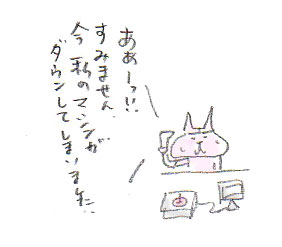 ああーっ!!
すみません、
今、私のマシンが
ダウンしてしまいました。